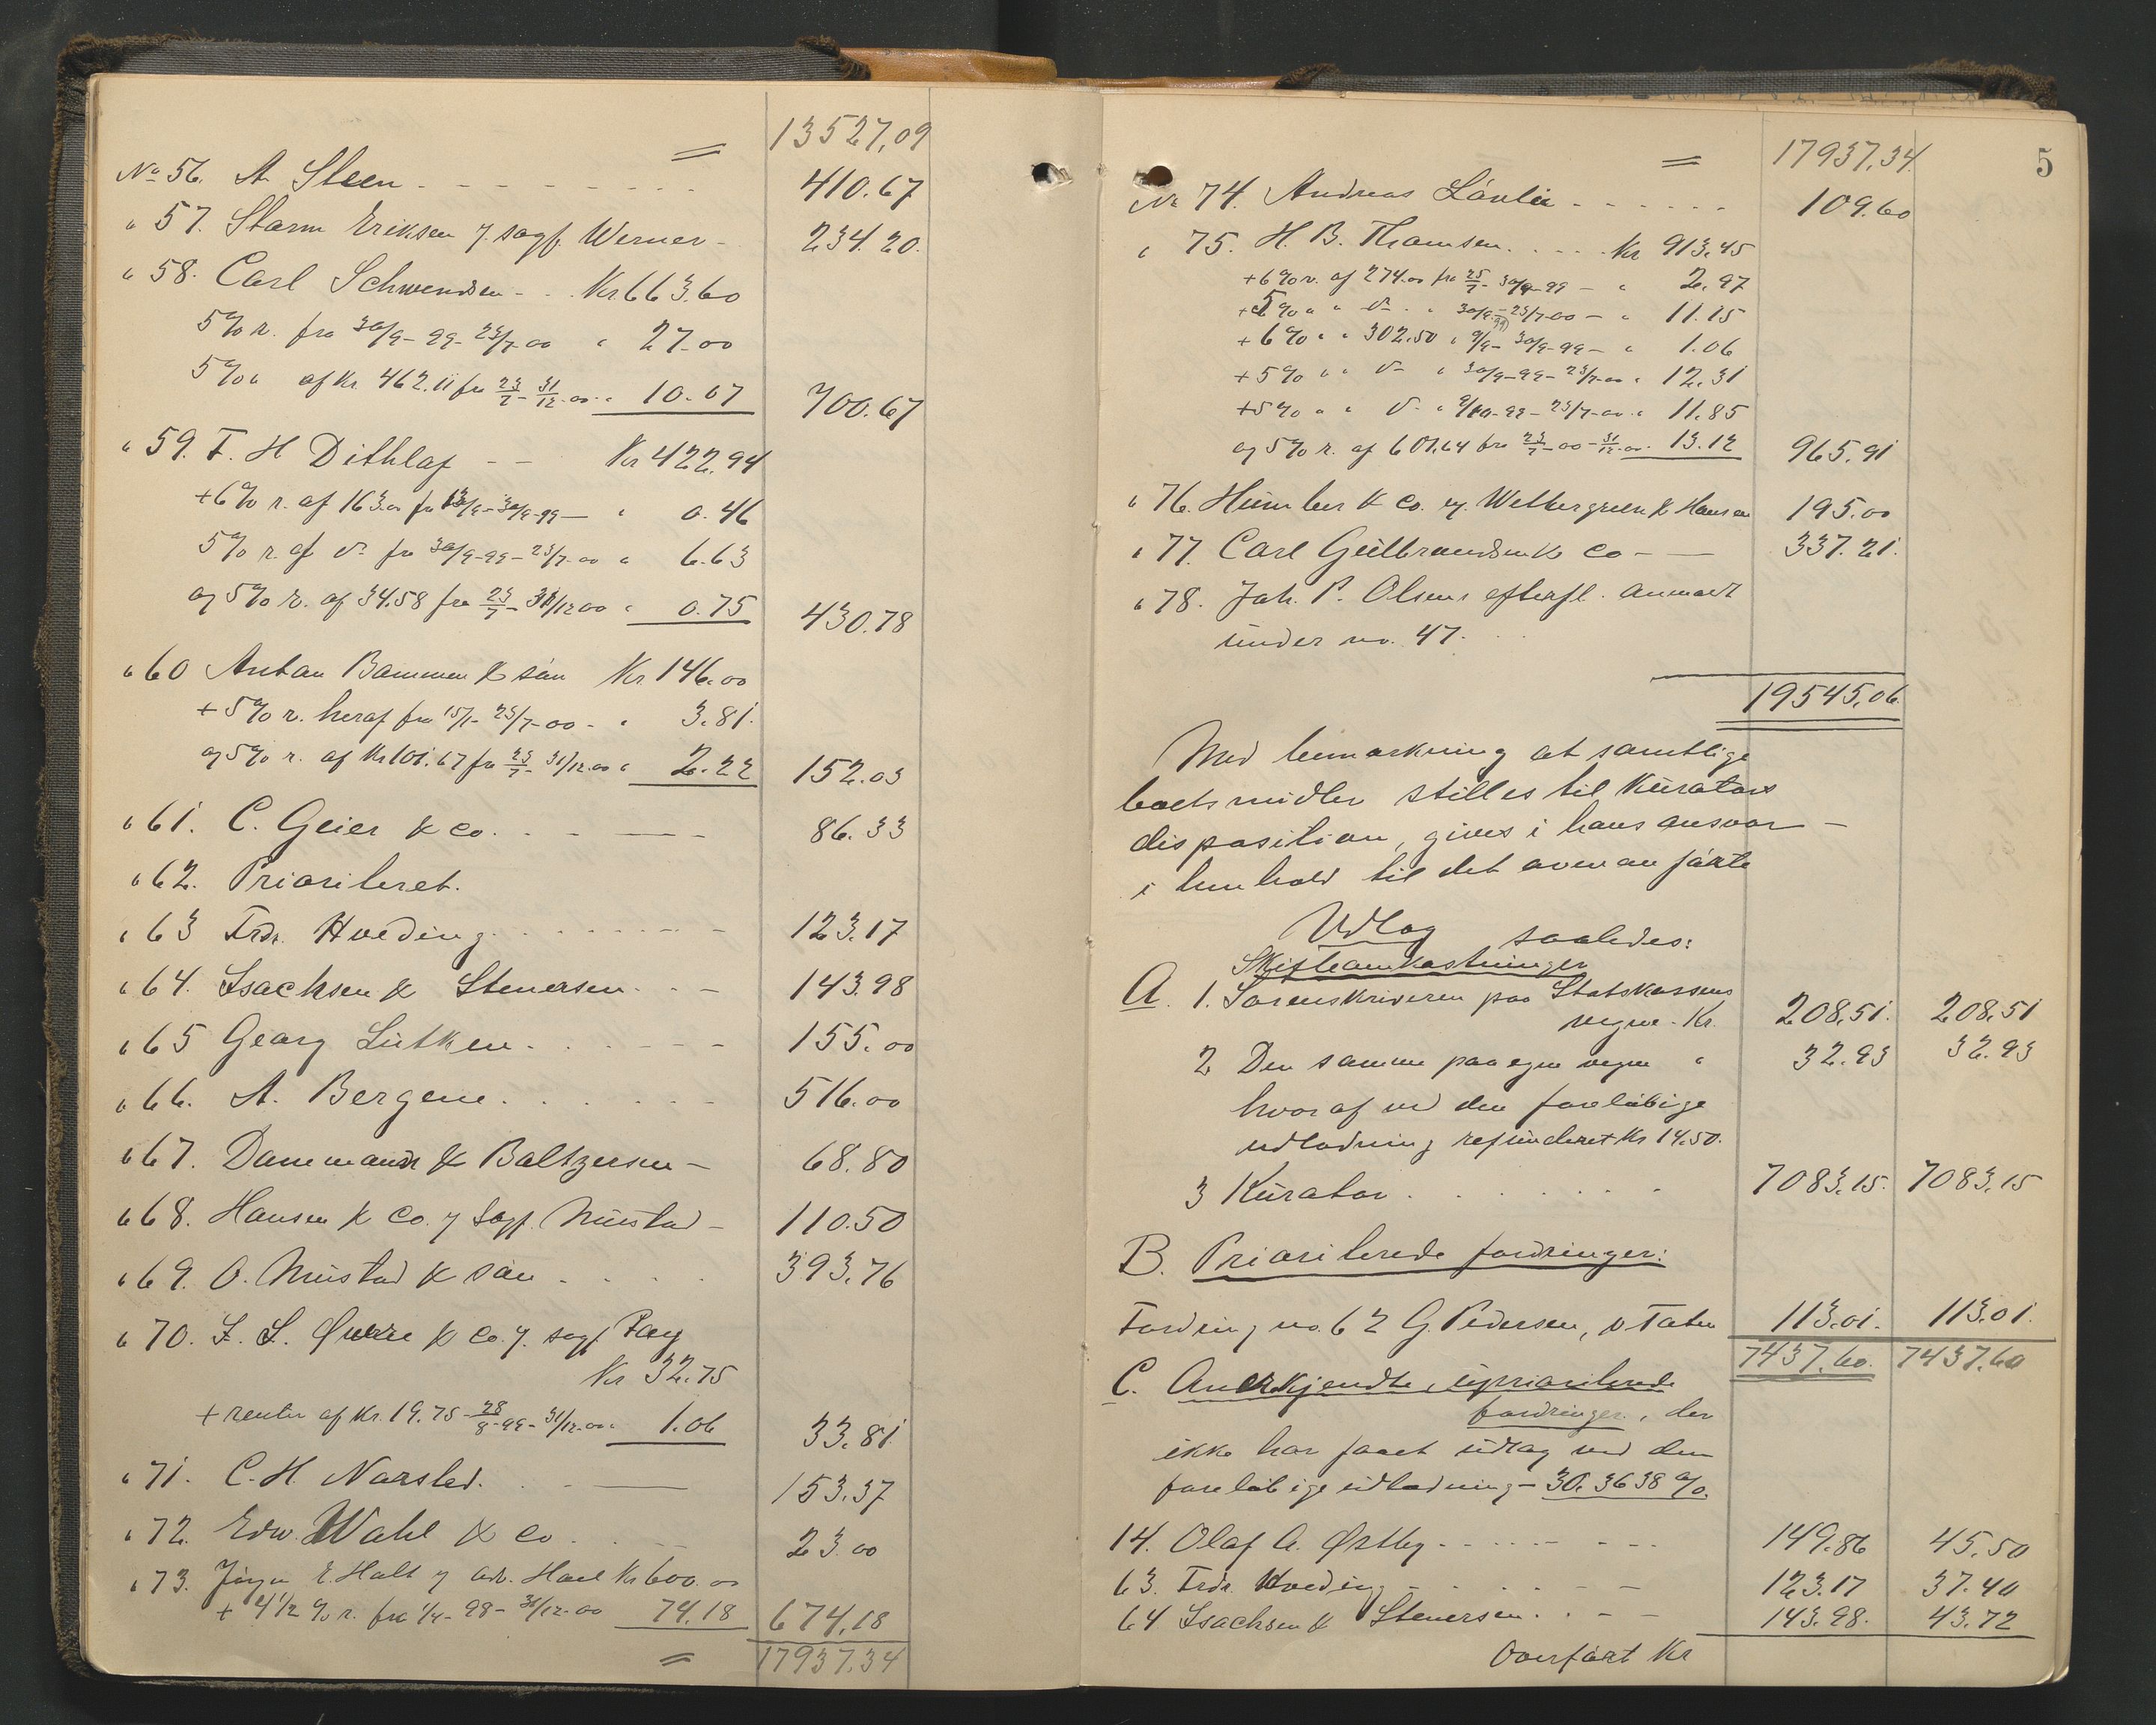 = 13527,09
No 56. A. Steen - - - - - - - - - 410.67
" 57. Storm Eriksen v. sagf. Werner - 234.20.
" 58. Carl Schwendsen - . . Kr 663.60
5 % r. fra 30/9-99-23/7-00 " 27.00
5 % " af Kr. 462.11 fra 23/7-31/12-00 . " 10.07 700.67
" 59. F. H Dithlaf - - Kr 422.94
+ 6 % r. af 163.00 fra 13/9-30/9-99 - " 0.46
5 % r. af do fra 30/9-99-23/7-00 " 6.63
og 5 % r. af 34.58 fra 23/7-31/12 00 " 0.75 430.78
" 60 Anton Bammen & søn Kr 146.00
+ 5 % r. heraf fra 15/1-23/7-00 - " 3.81.
og 5 % r. af Kr 101.67 fra 23/7-31/12.00 " 2.22 152.03
" 61. C. Geier & co. . - —— - 86.33
" 62. Prioriteret.
" 63 Frdr. Hveding. - - - - - - - 123.17
" 64. Isachsen & Stenersen. - - 143.98
" 65 Georg Lütken. . . . - - - 155.00
" 66. A. Bergene. . . . . . - 516.00
" 67. Dammann & Baltzersen - 68.80
" 68. Hansen & Co. v. Sagf. Mustad - 110.50
" 69. O. Mustad & søn . . . . 393.76
" 70. I. L. Qvære & Co. v. sagf
Kr 32.75
+ renter af Kr. 19.75 - 28/8-99-31/12.00 " 1.06 33.81
" 71. C. H. Narsted. . . —— 153.37
" 72. Edw. Wahl & Co . . . - - 23.00
" 73. E. Holt v adv. Kr 600.00
+ 4 1/2 % r. fra 1/4-98-31/12-00 74.18 674.18
= 17937.34
5
= 17937,34.
No 74. Andreas Løvlie - - - - - - 109.60
" 75. H. B. Thomsen. . . - - Kr 913.45
+ 6 % r. af 274.00 fra 25/7-30/9-99 - " 2.97
+ 5 % " " do . " 30/9-99-23/7-00 - " 11.15
+ 6 % " " 302.50 " 9/9-30/9-99 - " 1.06
+ 5 % " " do " 30/9-99-23/7-00 " 12.31
+ 5 % " " do . " 9/10-99-23/7-00 . " 11.85
og 5 % r. af 601,64 fra 23/7-00-31/12-00. 13.12 965.91
" 76. Humber & Co. v. Wettergreen & Hansen 195.00
" 77. Carl Gulbrandsen & Co - —— 337.21.
" 78. Joh. P. Olsens efterfl. anmeldt
under no. 47.
19545,06
Med bemærkning at samtlige
boets midler stilles til kurators
disposition, gives i hans ansvar -
i henhold til det ovenanførte
Udlæg saaledes:
Skifteomkostninger
A. 1. Sorenskriveren paa Statskassens
vegne - Kr. 208,51. 208,51
2 Den samme paa egne vegne " 32.93 32.93
hvoraf ved den foreløbige
udlodning refunderet Kr 14.50.
3 Kurator . . . . . . . 7083,15. 7083,15
B. Prioriterede fordringer:
Fordring no. 62 G. Pedersen, v. Taten 113.01. 113.01.
7437.60. 7437.60
C. Anerkjendte, uprioriterede
fordringer, der
ikke har faaet udlæg ved den
foreløbige udlodning - 30.3638 %.
14. Olaf A. Østby - - - - - - - - 149.86 45.50
63. Frdr. Hveding - - . - - - 123.17 37.40
64 Isachsen & Stenersen . . - - 143.98. 43.72
Overført Kr